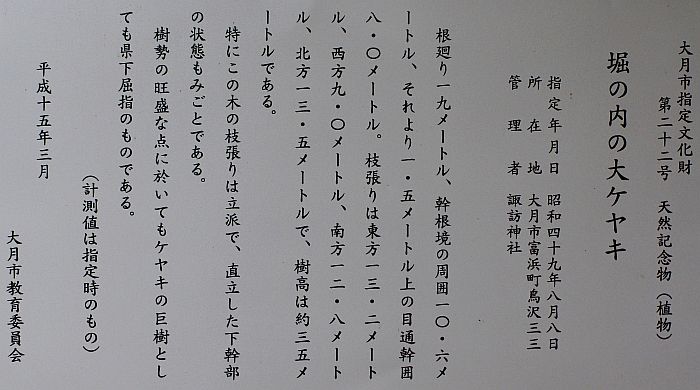 大月市指定文化財
第二十二号　天然記念物（植物）
堀の内の大ケヤキ
指定年月日　昭和四十九年八月八日
所在地　大月市富浜町鳥沢三三
管理者　諏訪神社
根廻り一九メートル、幹根境の周囲一〇・六メ
ートル、それより一・五メートル上の目通幹囲
八・〇メートル。枝張りは東方一三・二メート
ル、西方九・〇メートル、南方一二・八メート
ル、北方一三・五メートルで、樹高は約三五メ
ートルである。
特にこの木の枝張りは立派で、直立した下幹部
の状態もみごとである。
樹勢の旺盛な点に於いてもケヤキの巨樹とし
ても県下屈指のものである。
（計測値は指定時のもの）
平成十五年三月
大月市教育委員会